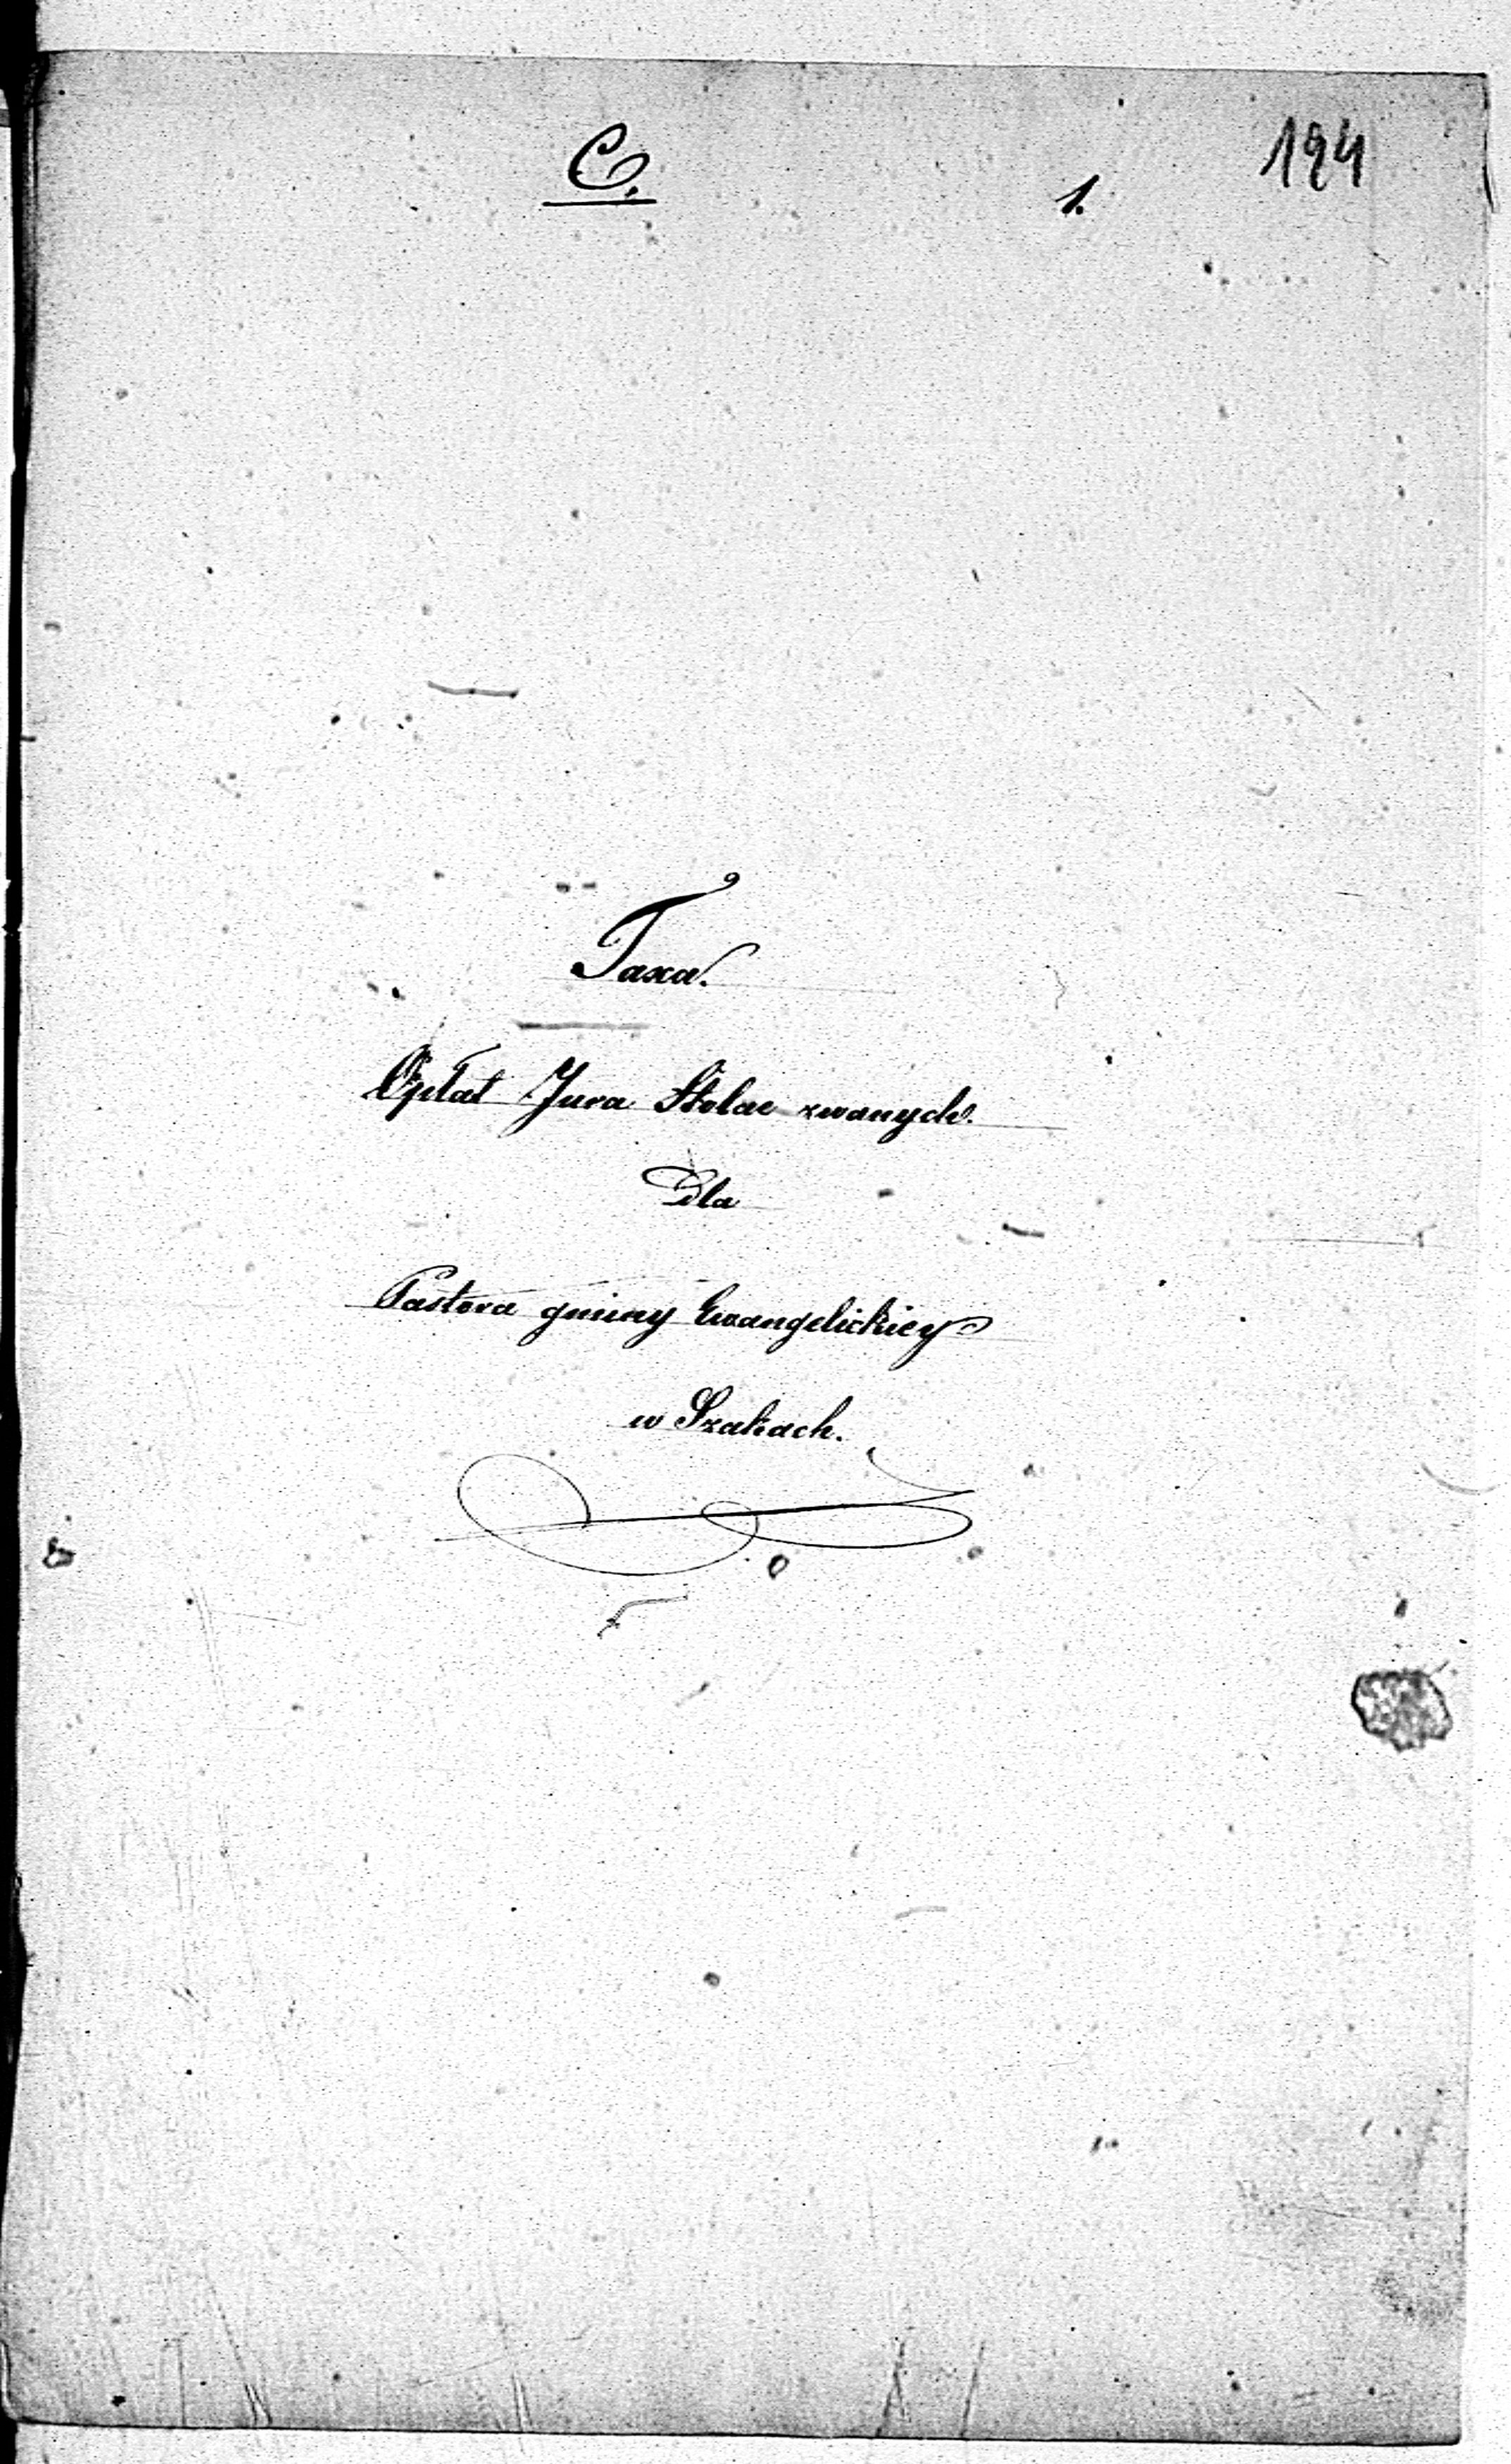 C.
1.
194
Taxa.
Opłat Jura Stolae zwanych.
Dla
Pastora gminy Ewangelickiey
w Szakach.